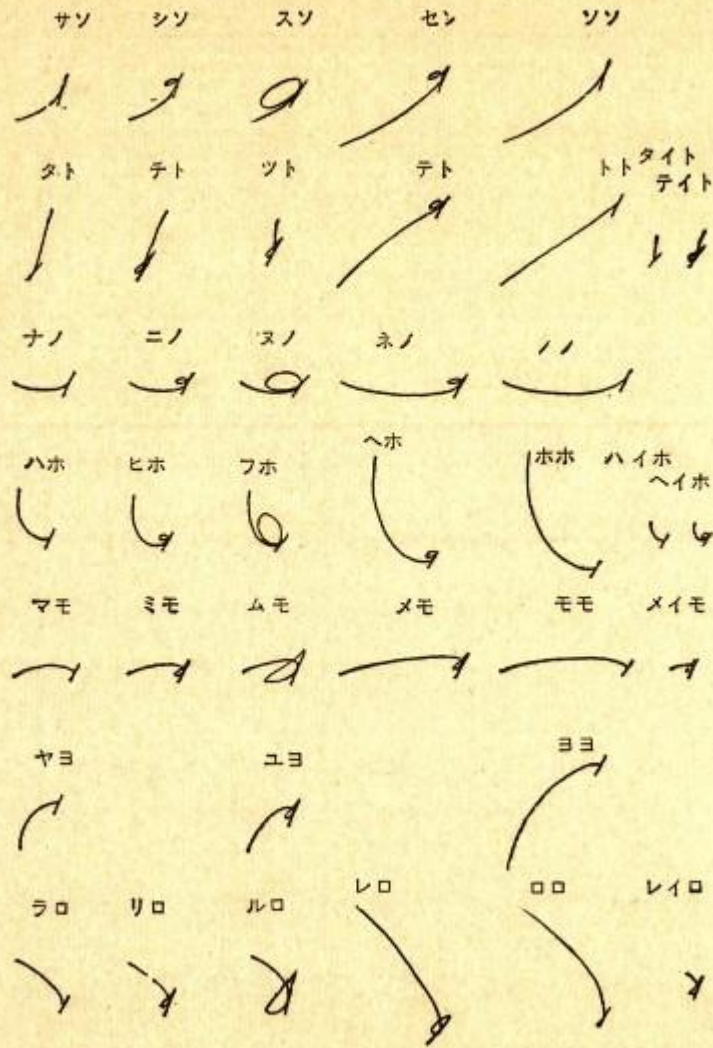 サソ シソ スソ セン ソソ
タト チト ツト テト トト タイト
テイト
ナノ ニノ ヌノ ネノ ノノ
ハホ ヒホ フホ ヘホ ホホ ハイホ
ヘイホ
マモ ミモ ムモ メモ モモ メイモ
ヤヨ ユヨ ヨヨ
ラロ リロ ルロ レロ ロロ レイロ